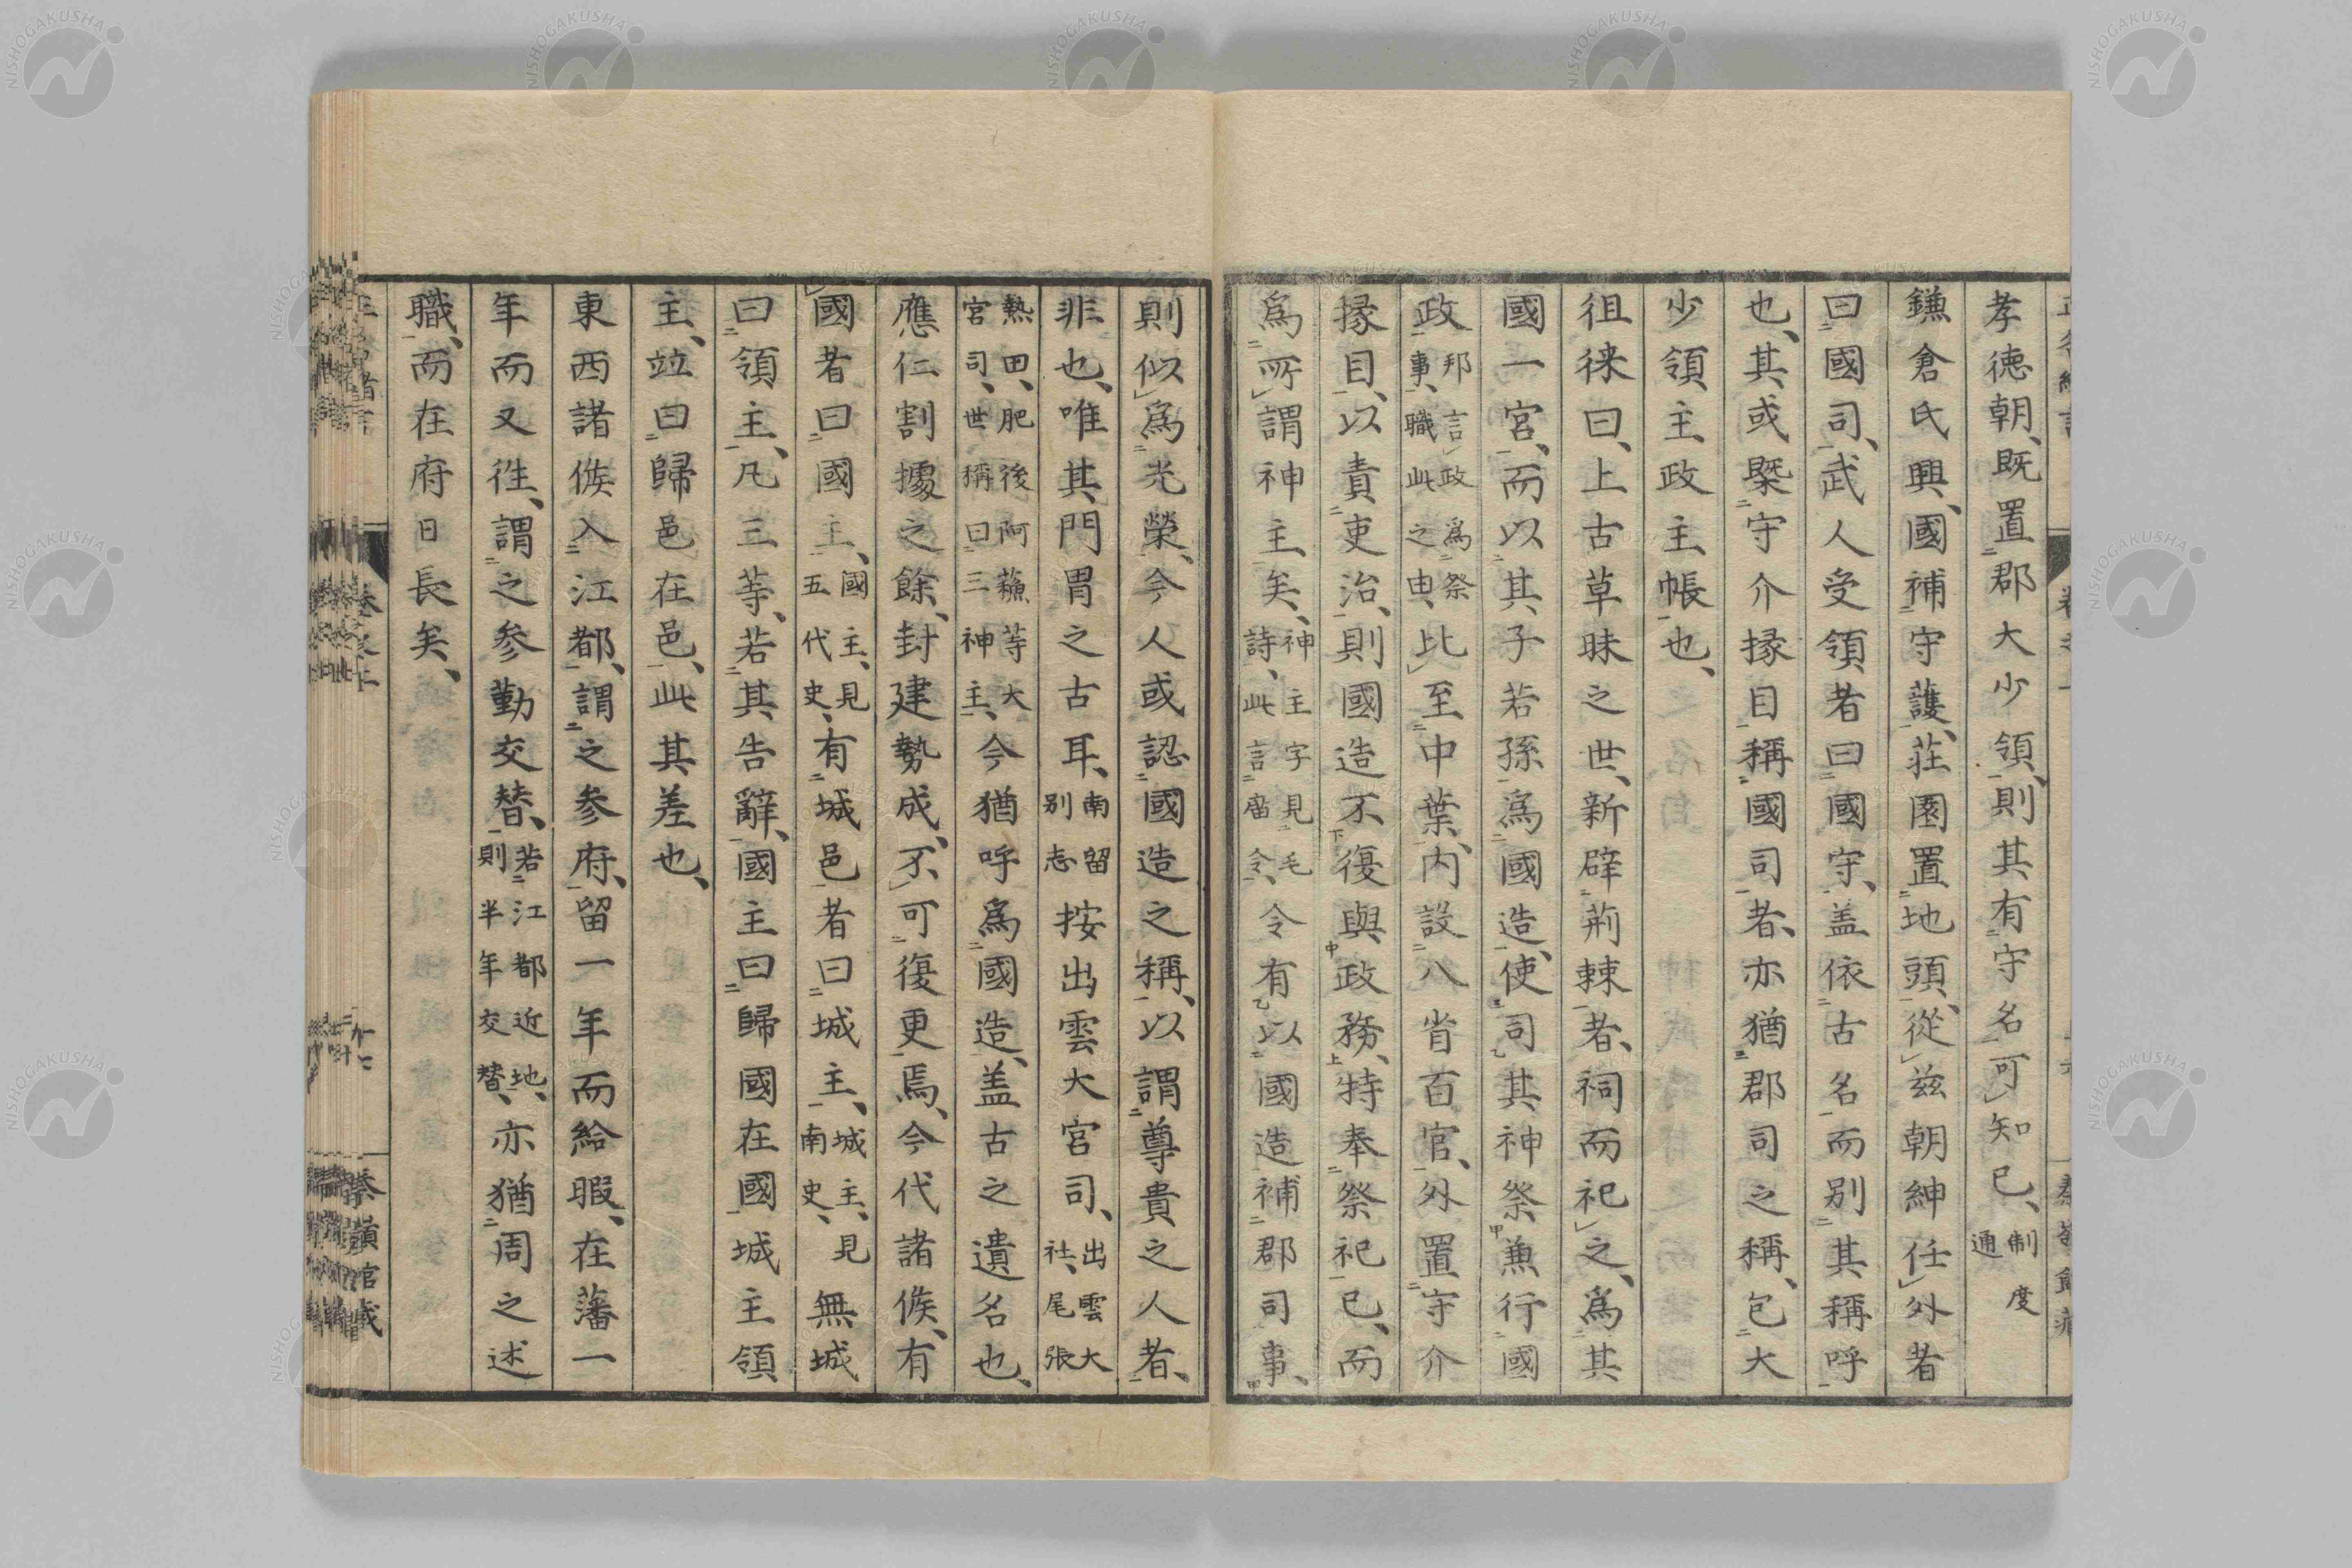 孝徳朝、既置郡大少領、則其有守名可知已、制度通
鎌倉氏興、國補守護、荘園置地頭、從茲朝紳任外者
曰國司、武人受領者曰國守、盖依古名而別其稱呼
也、其或槩守介掾目稱國司者、亦猶郡司之稱、包大
少領、主政主帳也、
徂徠曰、上古草昧之世、新辟荊棘者、祠而祀之、為其
國一宮、而以其子若孫為國造、使司其神祭兼行國
政邦言政為祭事、職此之由、比至中葉、内設八省百官、外置守介
掾目、以責吏治、則國造不復與政務、特奉祭祀已、而
為所謂神主矣、神主字見毛詩、此言當令、令有以國造補郡司事、
則似為光榮、今人或認國造之稱、以謂尊貴之人者、
非也、唯其門冑之古耳、南留別志按出雲大宮司、出雲大社、尾張
熱田、肥後阿蘓等大宮司、世稱曰三神主、今猶呼為國造、盖古之遺名也、
應仁割據之餘、封建勢成、不可復更焉、今代諸侯、有
國者曰國主、國主、見五代史、有城邑者曰城主、城主、見南史、無城
曰領主、凡三等、若其告辭、國主曰歸國在國城主領
主、竝曰歸邑在邑、此其差也、
東西諸侯入江都、謂之參府、留一年而給暇、在藩一
年而又徃、謂之參勤交替、若江都近地、則半年交替、亦猶周之述
職、而在府日長矣、